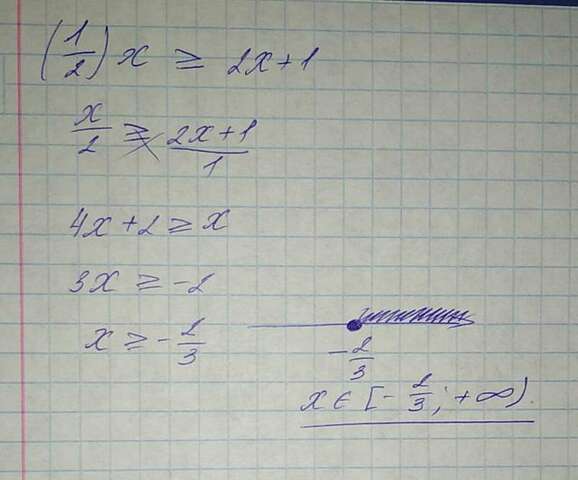 (1/2) x ≥ 2x+1
x/2 ≥ 2x+1/1
4x+2 ≥ x
3x ≥ -2
x ≥ -2/3
-2/3
x ∈ [-2/3; +∞).